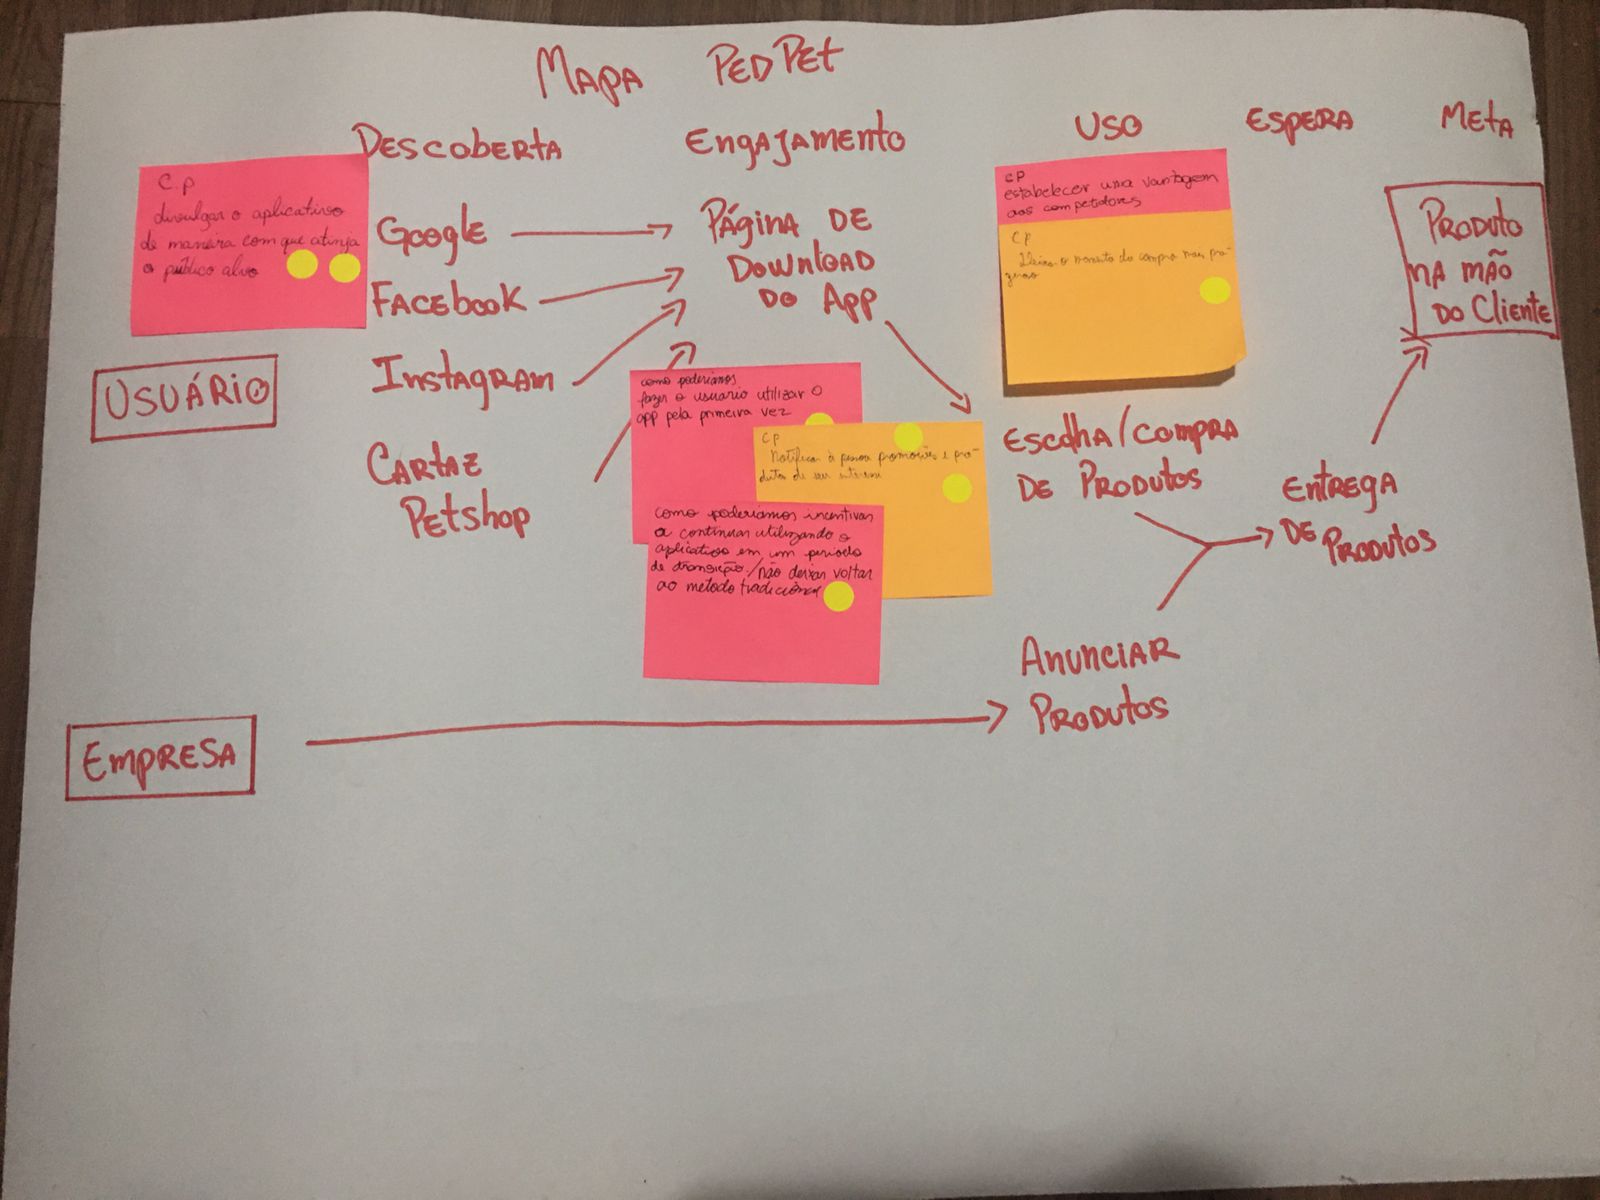 MAPA PEDPET
DESCOBERTA
ENGAJAMENTO
USO
ESPERA
META
C.P
divulgar o aplicativo
de maneira com que atinja
o público alvo
USUÁRIO
Google
Facebook
Instagram
Cartaz
Petshop
Página de
Download
do App
como poderiamos
fazer o usuario utilizar o
app pela primeira vez
CP
Notificar à pessoa promoções e pro-
dutos de seu interesse
como poderiamos incentivar
a continuar utilizando o
aplicativo em um periodo
de transição/não deixar voltar
ao metodo tradicional
CP
estabelecer uma vantagem
aos competidores
CP
Deixar o momento da compra mais pra-
zeroso
Escolha/compra
de Produtos
Entrega
de Produtos
Produto
na mão
do Cliente
EMPRESA
Anunciar
Produtos